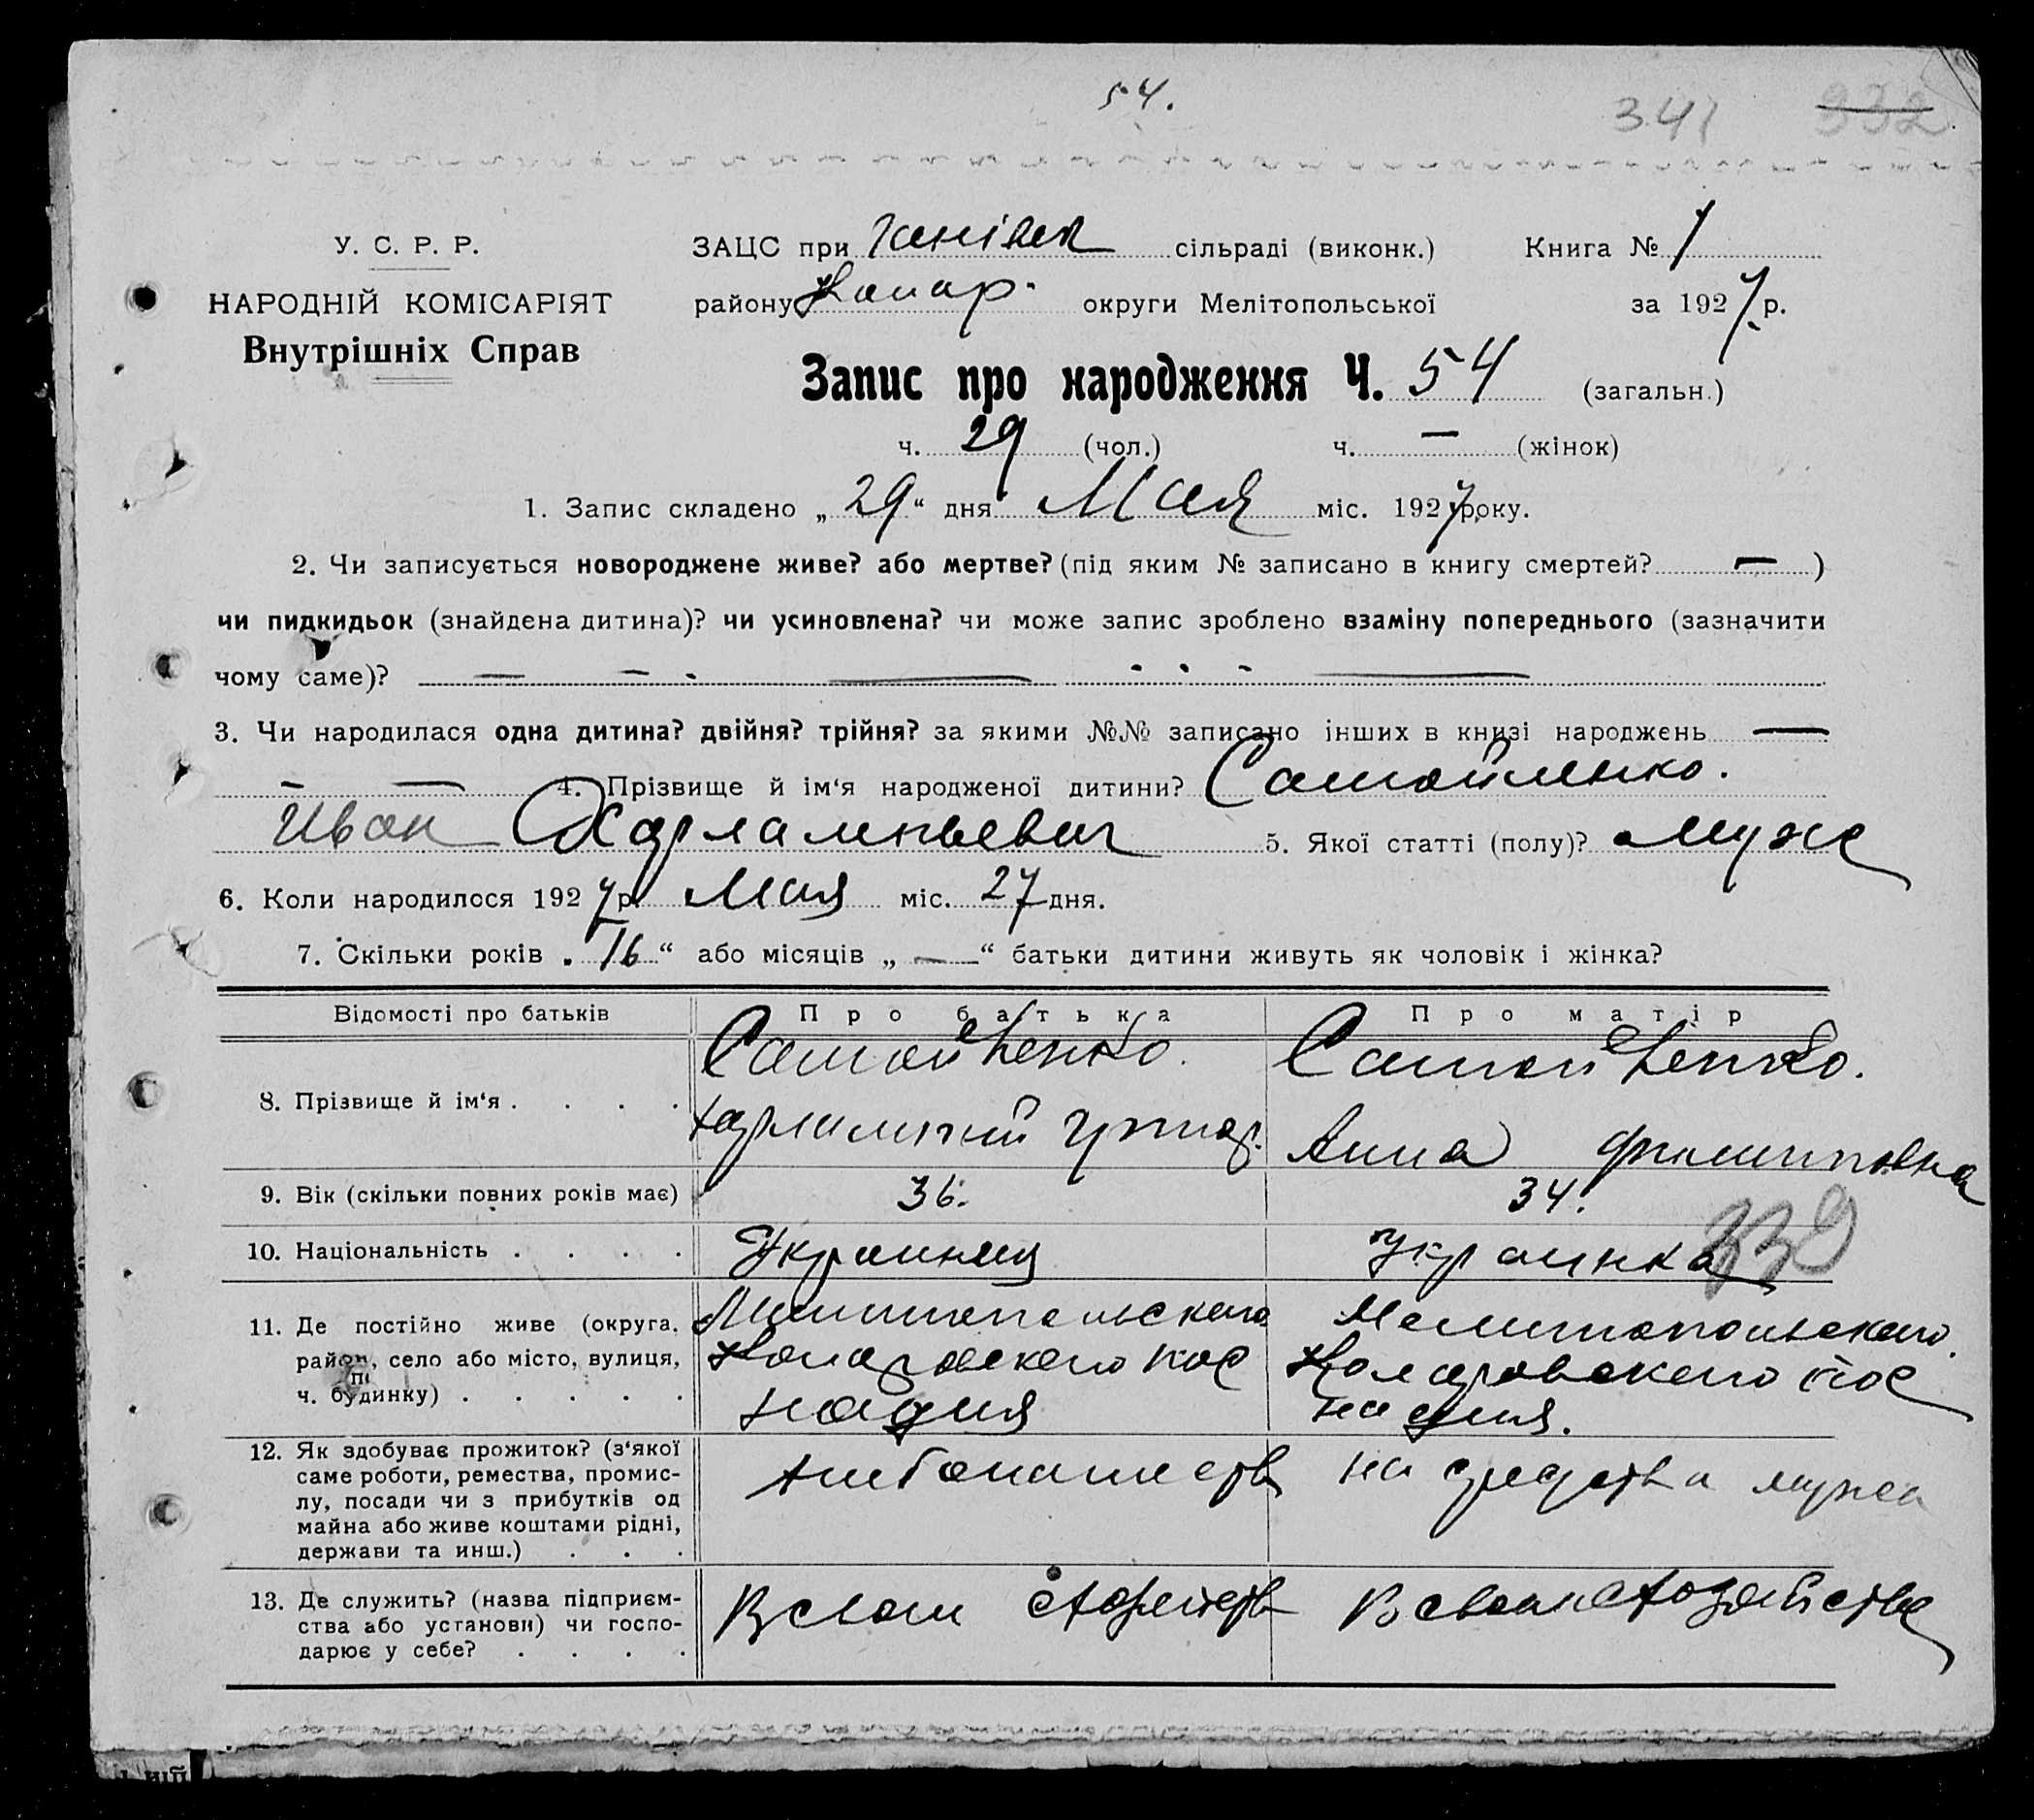 54.
341 332
У. С. Р. Р.
НАРОДНІЙ КОМІСАРІЯТ
Внутрішніх Справ
ЗАЦС при сільраді (виконк.) Книга № 1
району округи Мелітопольської за 1927 р.
Запис про народження Ч. 54 (загальн.)
ч. 29 (чол.) ч. — (жінок)
1. Запис складено „ 29 “ дня Мая міс. 1927 року.
2. Чи записується новороджене живе? або мертве? (під яким № записано в книгу смертей? — )
чи пидкидьок (знайдена дитина)? чи усиновлена? чи може запис зроблено взаміну попереднього (зазначити
чому саме)? — — — —
3. Чи народилася одна дитина? двійня? трійня? за якими №№ записано інших в книзі народжень —
— — 4. Прізвище й ім‘я народженої дитини? Самойленко.
Иван Харлампьевич 5. Якої статті (полу)? муж
6. Коли народилося 1927 р. Мая міс. 27 дня.
7. Скільки років „ 16 “ або місяців „ — “ батьки дитини живуть як чоловік і жінка?
Відомості про батьків Про батька Про матір
8. Прізвище й ім‘я . . . . Самойленко. Самойленко.
Харлампий Анна Филиповна
9. Вік (скільки повних років має) 36. 34.
10. Національність . . . . Украинец Украинка
339
11. Де постійно живе (округа, район, село або місто, вулиця, ч. будинку) . . . . . Мелитопольского Мелитопольского
12. Як здобуває прожиток? (з‘якої
саме роботи, ремества, промис-
лу, посади чи з прибутків од
майна або живе коштами рідні,
держави та инш.) . . . хлебопашеств на средства мужа
13. Де служить? (назва підприєм-
ства або установи) чи госпо-
дарює у себе? . . . . В своем В своем хозяйстве